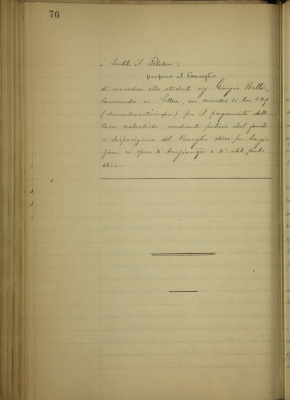 76
- Sentito il Relatore;
propone al Consiglio,
di concedere allo studente sig. Giorgio
laureando in Lettere, un sussidio di lire 225
(duecentoventicinque) per il pagamento delle
tasse scolastiche, mediante prelievo dal fondo
a disposizione del Consiglio stesso per
in opere di beneficenza e di utilità pubb-
lica.-